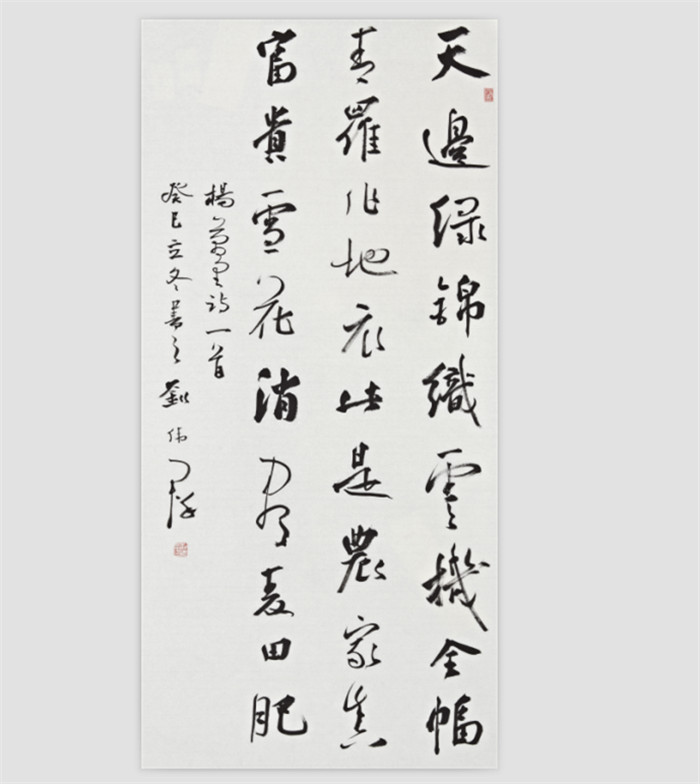 天邊绿錦織雲機全幅
青羅作地衣此是農家真
富貴雪花消盡麦田肥
楊萬里詩一首
癸巳立冬書之 劉伟